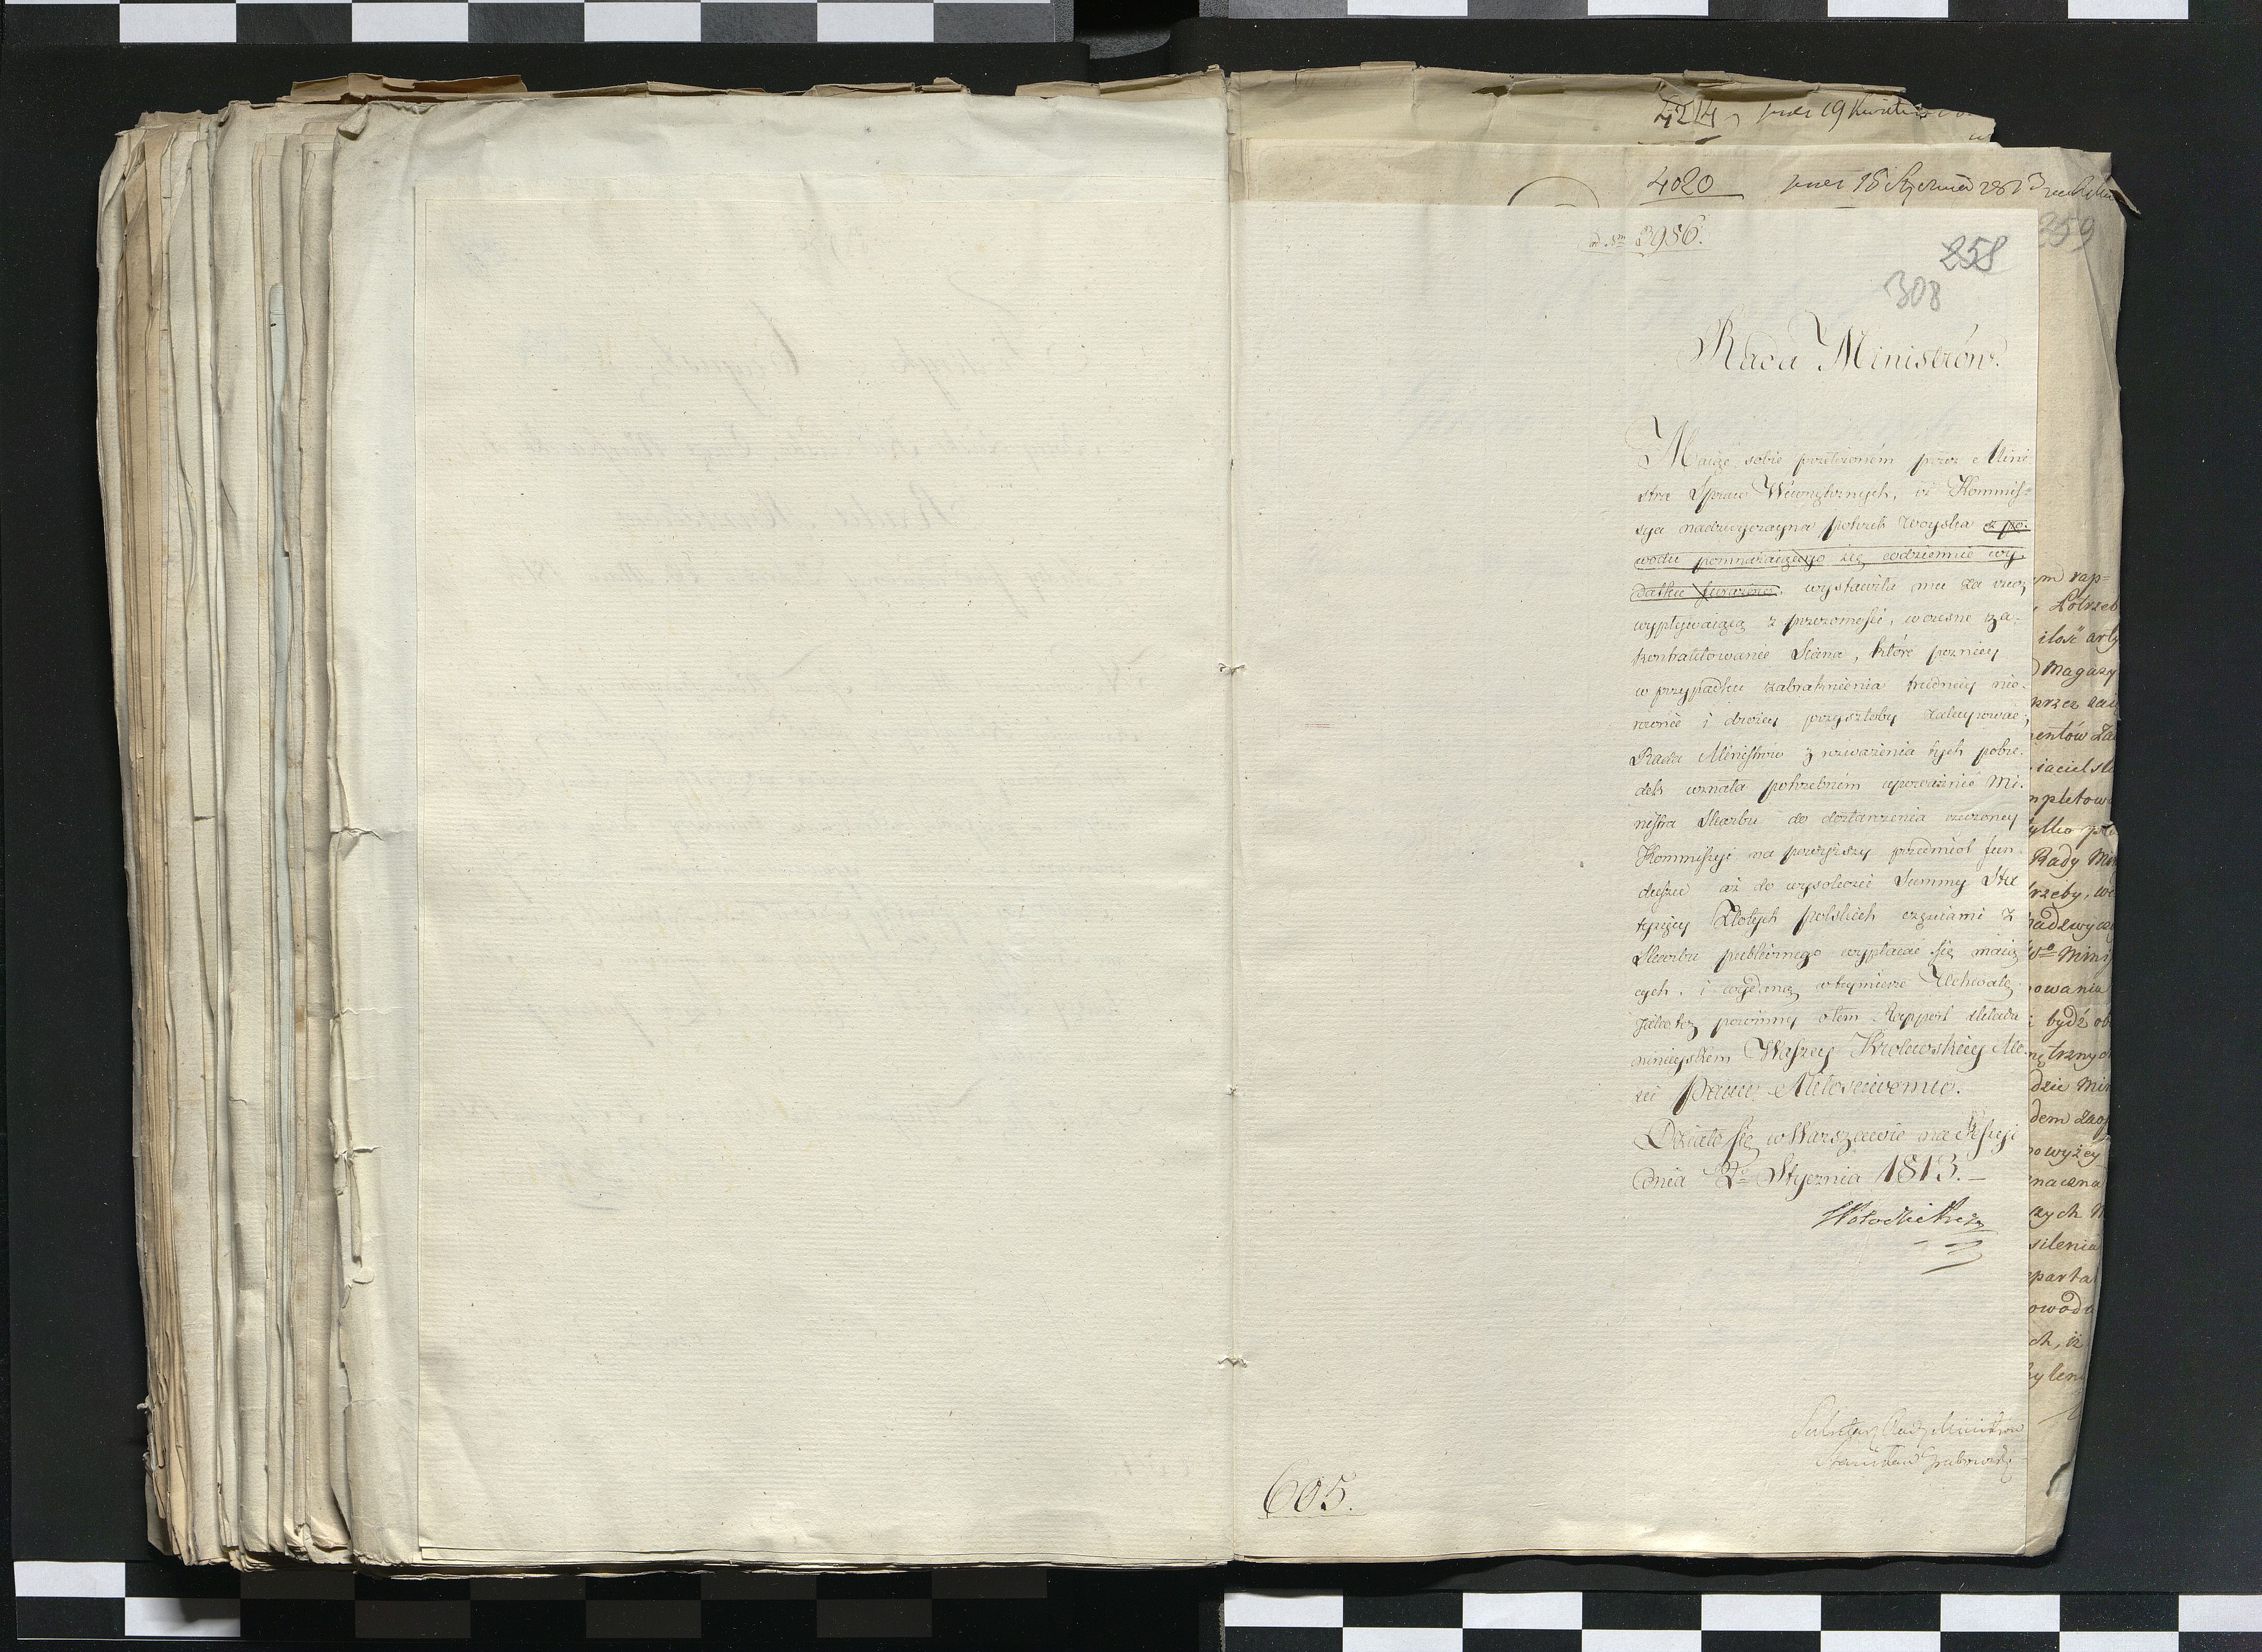 4214
4020
ad Nrm 3986.
258
259
308
Rada Ministrów.
Maiąc sobie przełożonem przez Mini-
stra Spraw Wewnętrznych, iż Kommis-
sya nadzwyczayna potrzeb Woyska z po-
wodu pomnażaiącego się codziennie wy-
datku furażów, wystawiła mu za rzecz
wypływaiącą z przezorności, wczesne za-
kontraktowanie Siana, które pozniey
w przypadku zabraknienia trudniey nie-
rownie i drożey przyszłoby zakupować,
Rada Ministrow z uważenia tych pobu-
dek uznała potrzebnem upoważnić Mi-
nistra Skarbu do dostarczenia rzeczoney
Kommissyi na powyższy przedmiot fun-
duszu aż do wysokości Summy Stu
tysięcy Złotych polskich częściami z
Skarbu publicznego wypłacać się maią-
cych. i wydaną w tey mierze Uchwałę
powinny o tem Rapport składa
ninieyszem Waszey Krolewskiey Mo-
sci Panu Miłosciwemu.
Działo się w Warszawie na Sessyi
dnia 2. Stycznia 1813. –
Sekretarz Rady Ministrów
Stanisław Grabowski
605.
em rap=
Potrzeb
ilość arty
Magazy
przez
entów
iaciel
mpletow
tylko
Rady Min
trzeby,
nadzwycz
Mini
owania
bydź
trzny
dzie Min
dem
powyżey
naczna
szych
silenia
eparta
owodu
ch, iż